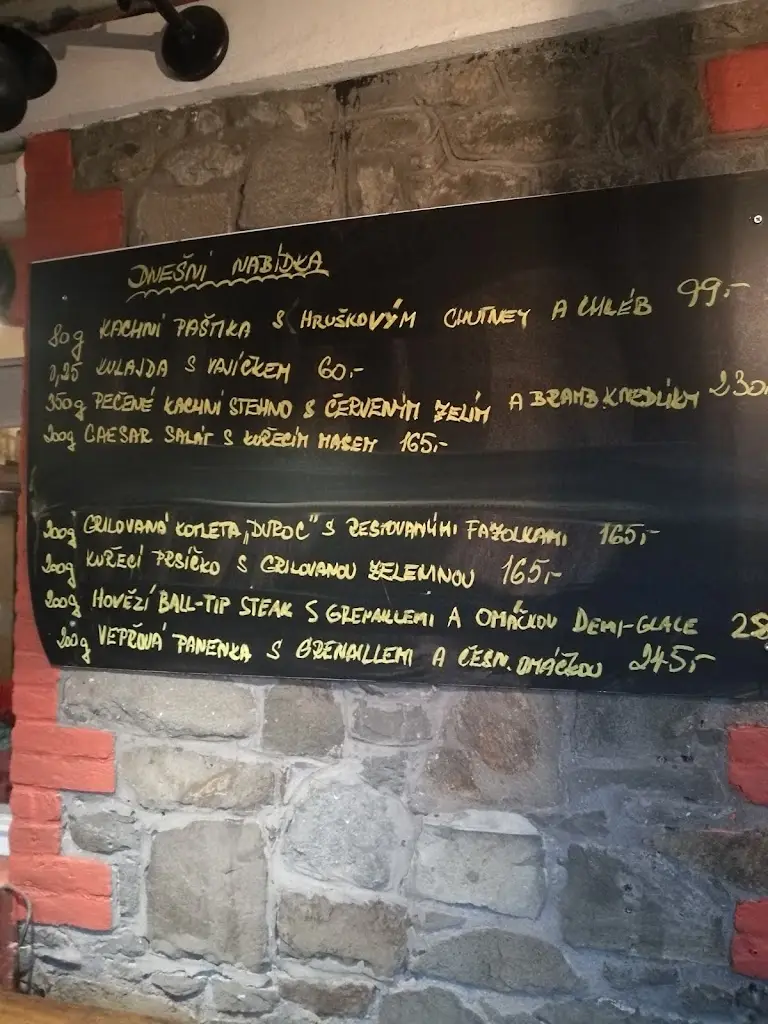 DNEŠNÍ NABÍDKA
80g KACHNÍ PAŠTIKA S HRUŠKOVÝM CHUTNEY A CHLÉB 99,-
0,25 KULAJDA S VAJÍČKEM 60,-
350g PEČENÉ KACHNÍ STEHNO S ČERVENÝM ZELÍM A BRAMB. KNEDLÍKY 230,
200g CAESAR SALÁT S KUŘECÍM MASEM 165,-
200g GRILOVANÁ KOTLETA "DUROC" S RESTOVANÝMI FAZOLKAMI 165,-
200g KUŘECÍ PRSÍČKO S GRILOVANOU ZELENINOU 165,-
200g HOVĚZÍ BALL-TIP STEAK S GRENAILLEMI A OMÁČKOU DEMI-GLACE
200g VEPŘOVÁ PANENKA S GRENAILLEMI A ČESN. OMÁČKOU 245,-